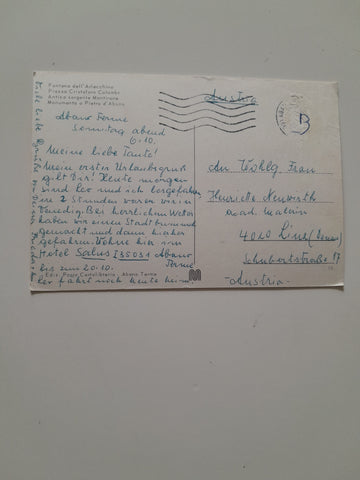 Fontana dell'Arlecchino
Piazza Cristoforo Colombo
Antica sorgente Montirone
Monumento a Pietro d'Abano
Austria
Abano Terme
Sonntag abend
6.10.
Meine liebe Tante!
Mein erster Urlaubsgruß
gilt Dir! Heute morgen
sind Leo und ich losgefahren
in 2 Stunden waren wir in
Venedig. Bei herrlichem Wetter
haben wir einen Stadtbummel
gemacht und dann hieher
gefahren. Wohne hier im
Hotel Salus I 35031 Abano
Terme
bis zum 20.10.
Leo fährt noch heute heim.
Ediz. Pozzo Cartolibreria - Abano Terme
Viele liebe Grüße
An Wohlg. Frau
Henriette Neuwirth
акad. Malerin
4020 Linz (Donau)
Schubertstraße 17
Austria